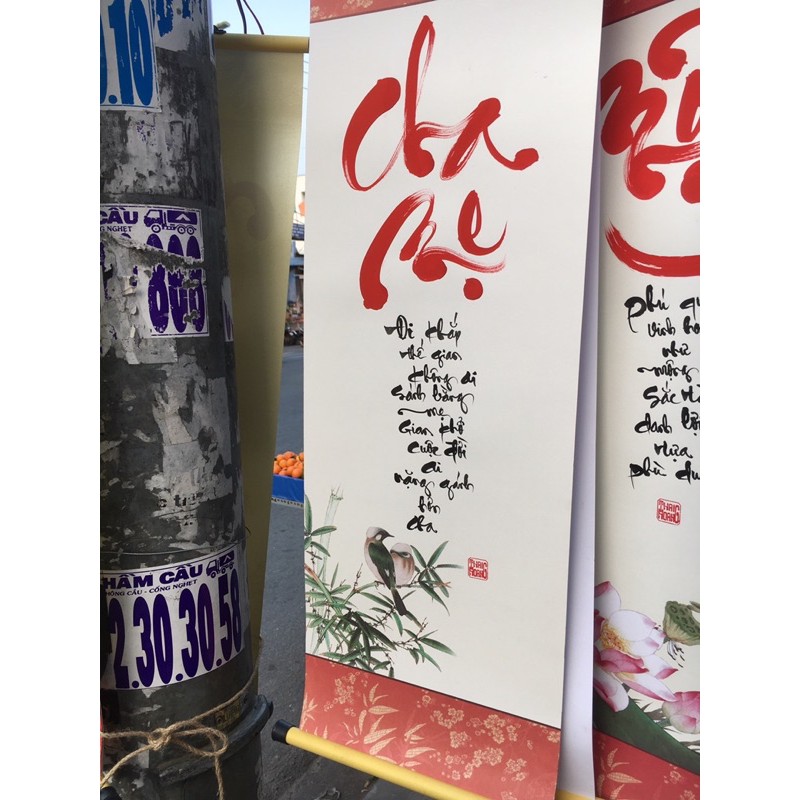 .10
CẦU
CÔNG NGHẸT
HẦM CẦU
THÔNG CẦU - CỐNG NGHẸT
2.30.30.58
Cha
Mẹ
Đi khắp
thế gian
không ai
sánh bằng
mẹ
Gian khổ
cuộc đời
ai
nặng gánh
hơn
cha
phú qu
vinh ho
như
mộng
sắc
danh lợi
tựa
phù du